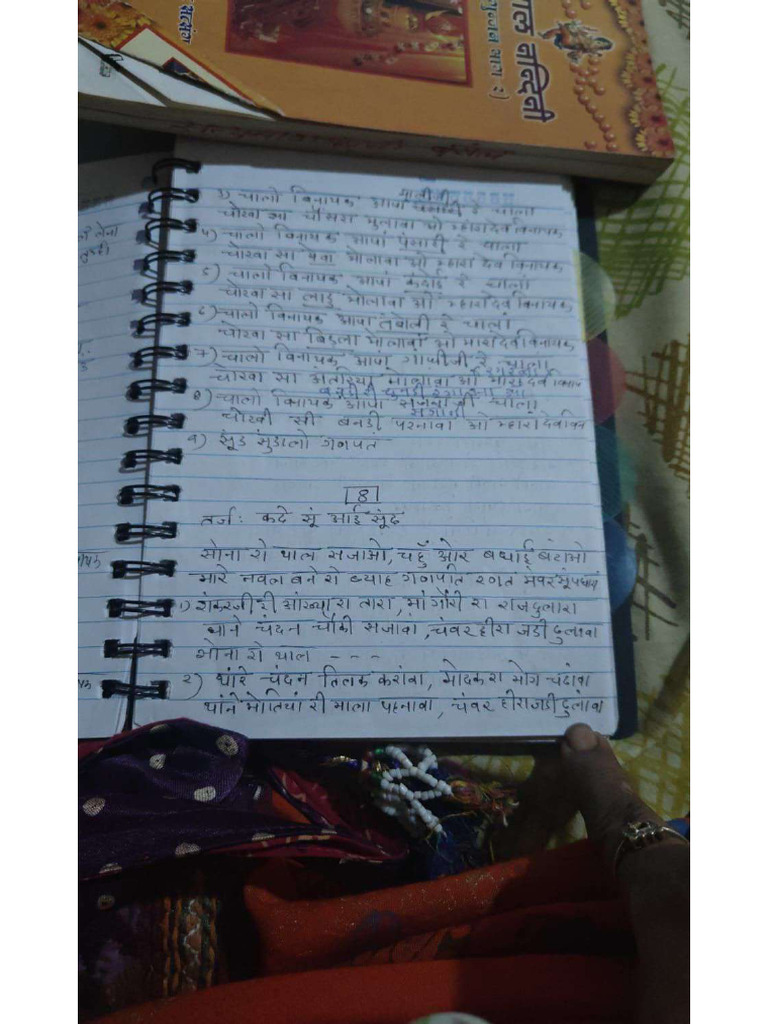 सत्संग
गल नन्दिनी
3) चालो विनायक आपां माली री रे चालां
चोखा सा चौसरा मुलावा ओ म्हारा देव विनायक
4) चालो विनायक आपां पंसारी रे चालां
चोखा सा मेवा मोलावा ओ म्हारा देव विनायक
5) चालो विनायक आपां कंदोई रे चालां
चोखा सा लाडु मोलावा ओ म्हारा देव विनायक
6) चालो विनायक आपां तंबोली रे चालां
चोखा सा बिडला मोलावां ओ म्हारा देव विनायक
7) चालो विनायक आपां गांधीजी रे चालां
चोखा सा मोलावा ओ म्हारा देव विनायक
8) चालो विनायक आपां सगाजी चालां
चोखी सी बनडी परनावा ओ म्हारा देव विन
9) सूंड सुंडालो गणपत
8
तर्ज: कदे सूं आई सूंठ
सोना रो थाल सजाओ, चहुँ ओर बधाई बंटाओ
मारे नवल बने रो ब्याह गणपति रणत भंवर सूं पधार्या
1) शंकरजी री आंख्या रा तारा, मां गौरी रा राजदुलारा
थाने चंदन चौकी सजावां, चंवर हीरा जडी ढुलावा
सोना रो थाल - - -
२) थांरे चंदन तिलक करांवा, मोदक रा भोग चढांवा
थांने मोतियां री माला पहनावा, चंवर हीरा जडी ढुलांवा